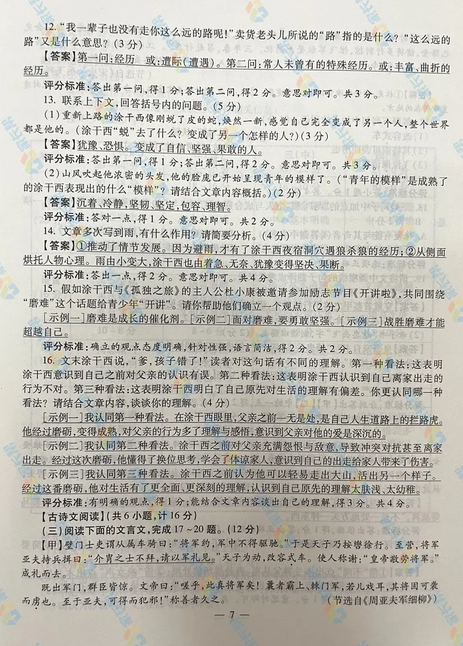 12. “我一辈子也没有走你这么远的路呢!”卖货老头儿所说的“路”指的是什么?“这么远的
路”又是什么意思?(3分)
【答案】第一问:经历 或:遭际(遭遇)。第二问:常人未曾有的特殊经历。或:丰富、曲折的
经历。
评分标准:答出第一问,得1分;答出第二问,得2分。意思对即可。共3分。
13. 联系上下文,回答括号内的问题。(5分)
(1)重新上路的涂干西像刚蜕了皮的蛇,焕然一新,感觉自己完全变成了另一个人,整个世界
都是他的。(涂干西“蜕”去了什么?变成了另一个怎样的人?)(3分)
【答案】犹豫、恐惧。变成了自信、坚强、果敢的人。
评分标准:答出第一问,得1分;答出第二问,得2分。意思对即可。共3分。
(2)山风吹起他浓密的头发,他的脸庞已开始呈现青年的模样了。(“青年的模样”是成熟了
的涂干西表现出的什么“模样”?请结合文章内容概括。)(2分)
【答案】沉着、冷静、坚韧、坚定、包容、理智。
评分标准:答对一点,得1分。意思对即可。共2分。
14. 文章多次写到雨,有什么作用?请简要分析。(4分)
【答案】①推动了情节发展。因为避雨,才有了涂干西夜宿洞穴遇狼杀狼的经历;②从侧面
烘托人物心理。雨由小变大,涂干西也由着急、无奈、犹豫变得坚决、果断。
评分标准:答出一点,得2分。意思对即可。共4分。
15. 假如涂干西与《孤独之旅》的主人公杜小康被邀请参加励志节目《开讲啦》,共同围绕
“磨难”这个话题给青少年“开讲”。请你帮助他们确立一个观点。(2分)
[示例一]磨难是成长的催化剂。[示例二]面对磨难,要勇敢坚强。[示例三]战胜磨难才能
超越自己。
评分标准:确立的观点态度明确,针对性强,语言简洁,得2分。共2分。
16. 文末涂干西说,“爹,孩子错了!”读者对这句话有不同的理解。第一种看法:这表明
涂干西意识到自己之前对父亲的认识有误。第二种看法:这表明涂干西认识到自己离家出走的
行为不对。第三种看法:这表明涂干西明白了自己原先对生活的理解有偏差。你更认同哪一种
看法?请结合文章内容,谈谈你的理解。(4分)
[示例一]我认同第一种看法。在涂干西眼里,父亲之前一无是处,是自己人生道路上的拦路虎。
他经过磨砺,变得成熟,对父亲的行为多了理解与感悟,意识到父亲对他的爱是深沉的。
[示例二]我认同第二种看法。涂干西之前对父亲充满怨恨与敌意,导致冲突对抗甚至离家
出走。经过这次磨砺,他懂得了换位思考,学会了体谅家人,意识到自己的出走给家人带来了伤害。
[示例三]我认同第三种看法。涂干西之前认为他可以轻易走出大山,活出另一个样子。
经过这番磨砺,他对生活有了更全面、更深刻的理解,认识到自己原先的理解太肤浅、太幼稚。
评分标准:有明确的观点,得1分;能结合文章内容谈出自己的理解,得3分。共4分。
【古诗文阅读】(共6小题,计16分)
(三)阅读下面的文言文,完成17-20题。(12分)
【甲】壁门士吏谓从属车骑曰:“将军约,军中不得驱驰。”于是天子乃按辔徐行。至营,将军
亚夫持兵揖曰:“介胄之士不拜,请以军礼见。”天子为动,改容式车。使人称谢:“皇帝敬劳将军。”
成礼而去。
既出军门,群臣皆惊。文帝曰:“嗟乎,此真将军矣!曩者霸上、棘门军,若儿戏耳,其将固可袭
而虏也。至于亚夫,可得而犯邪!”称善者久之。 (节选自《周亚夫军细柳》)
— 7 —